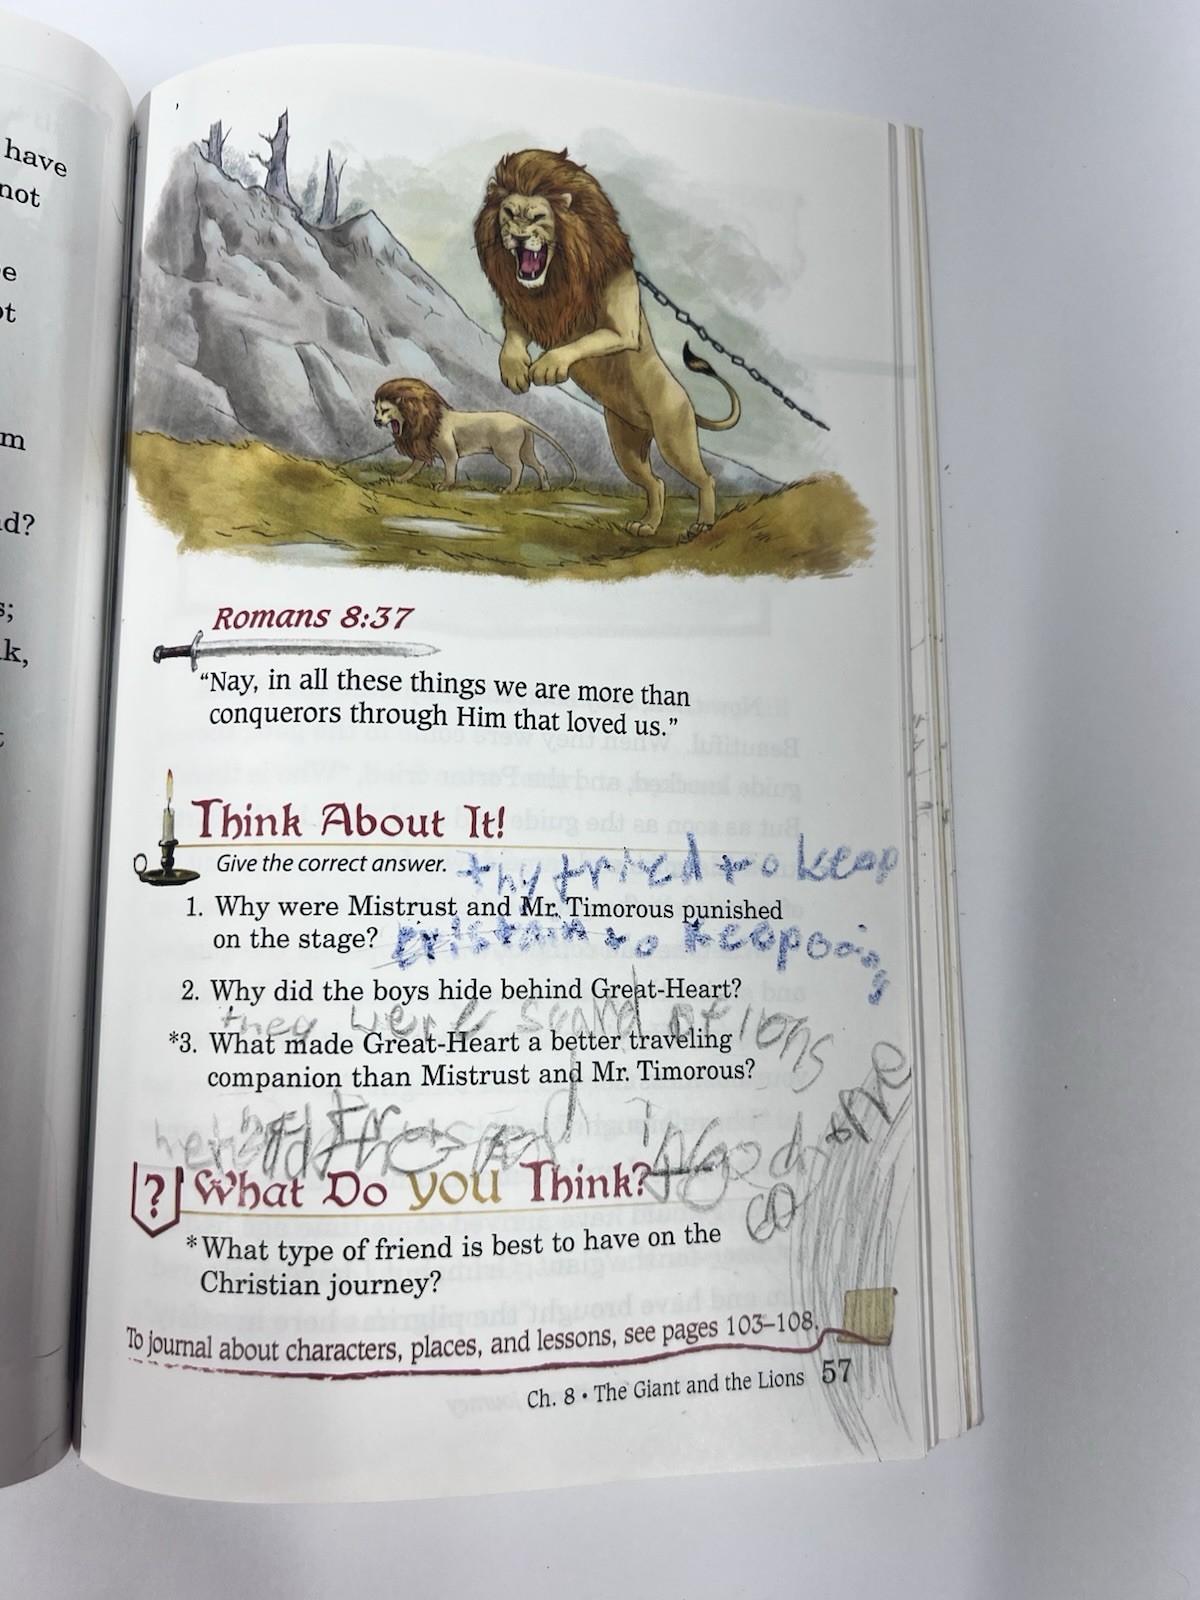 have
not
e
ot
m
d?
s;
k,
t
Romans 8:37
“Nay, in all these things we are more than
conquerors through Him that loved us.”
Think About It!
Give the correct answer.
thy tried to keep
1. Why were Mistrust and Mr. Timorous punished
on the stage?
to keepoing
2. Why did the boys hide behind Great-Heart?
they were scard of lions
*3. What made Great-Heart a better traveling
companion than Mistrust and Mr. Timorous?
in God
? What Do you Think?
*What type of friend is best to have on the
Christian journey?
To journal about characters, places, and lessons, see pages 103–108.
Ch. 8 • The Giant and the Lions 57